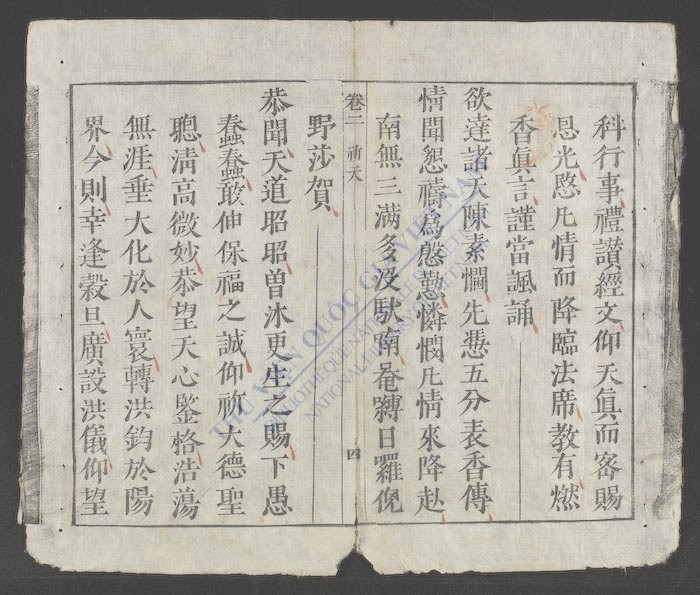 科行事禮讃經文仰天眞而密賜
恩光愍凡情而降臨法席教有燃
香眞言謹當諷誦
欲達諸天陳素悃先憑五分表香傳
情聞懇禱爲慇懃憐憫凡情來降赴
南無三滿多没馱南唵嚩日羅倪
卷二 祈天 四
野莎賀
恭聞天道昭昭曽沐更生之賜下愚
蠢蠢敢伸保福之誠仰祈大德聖
聰清高微妙恭望天心鑒格浩蕩
無涯垂大化於人寰轉洪鈞於陽
界今則幸逢榖旦廣設洪儀仰望
THƯ VIỆN QUỐC GIA VIỆT NAM
BIBLIOTHEQUE NATIONALE DU VIETNAM
NATIONAL LIBRARY OF VIETNAM